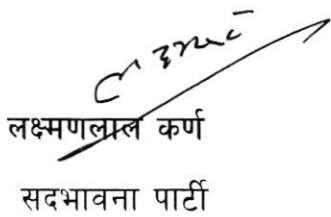 लक्ष्मणलाल कर्ण
सदभावना पार्टी